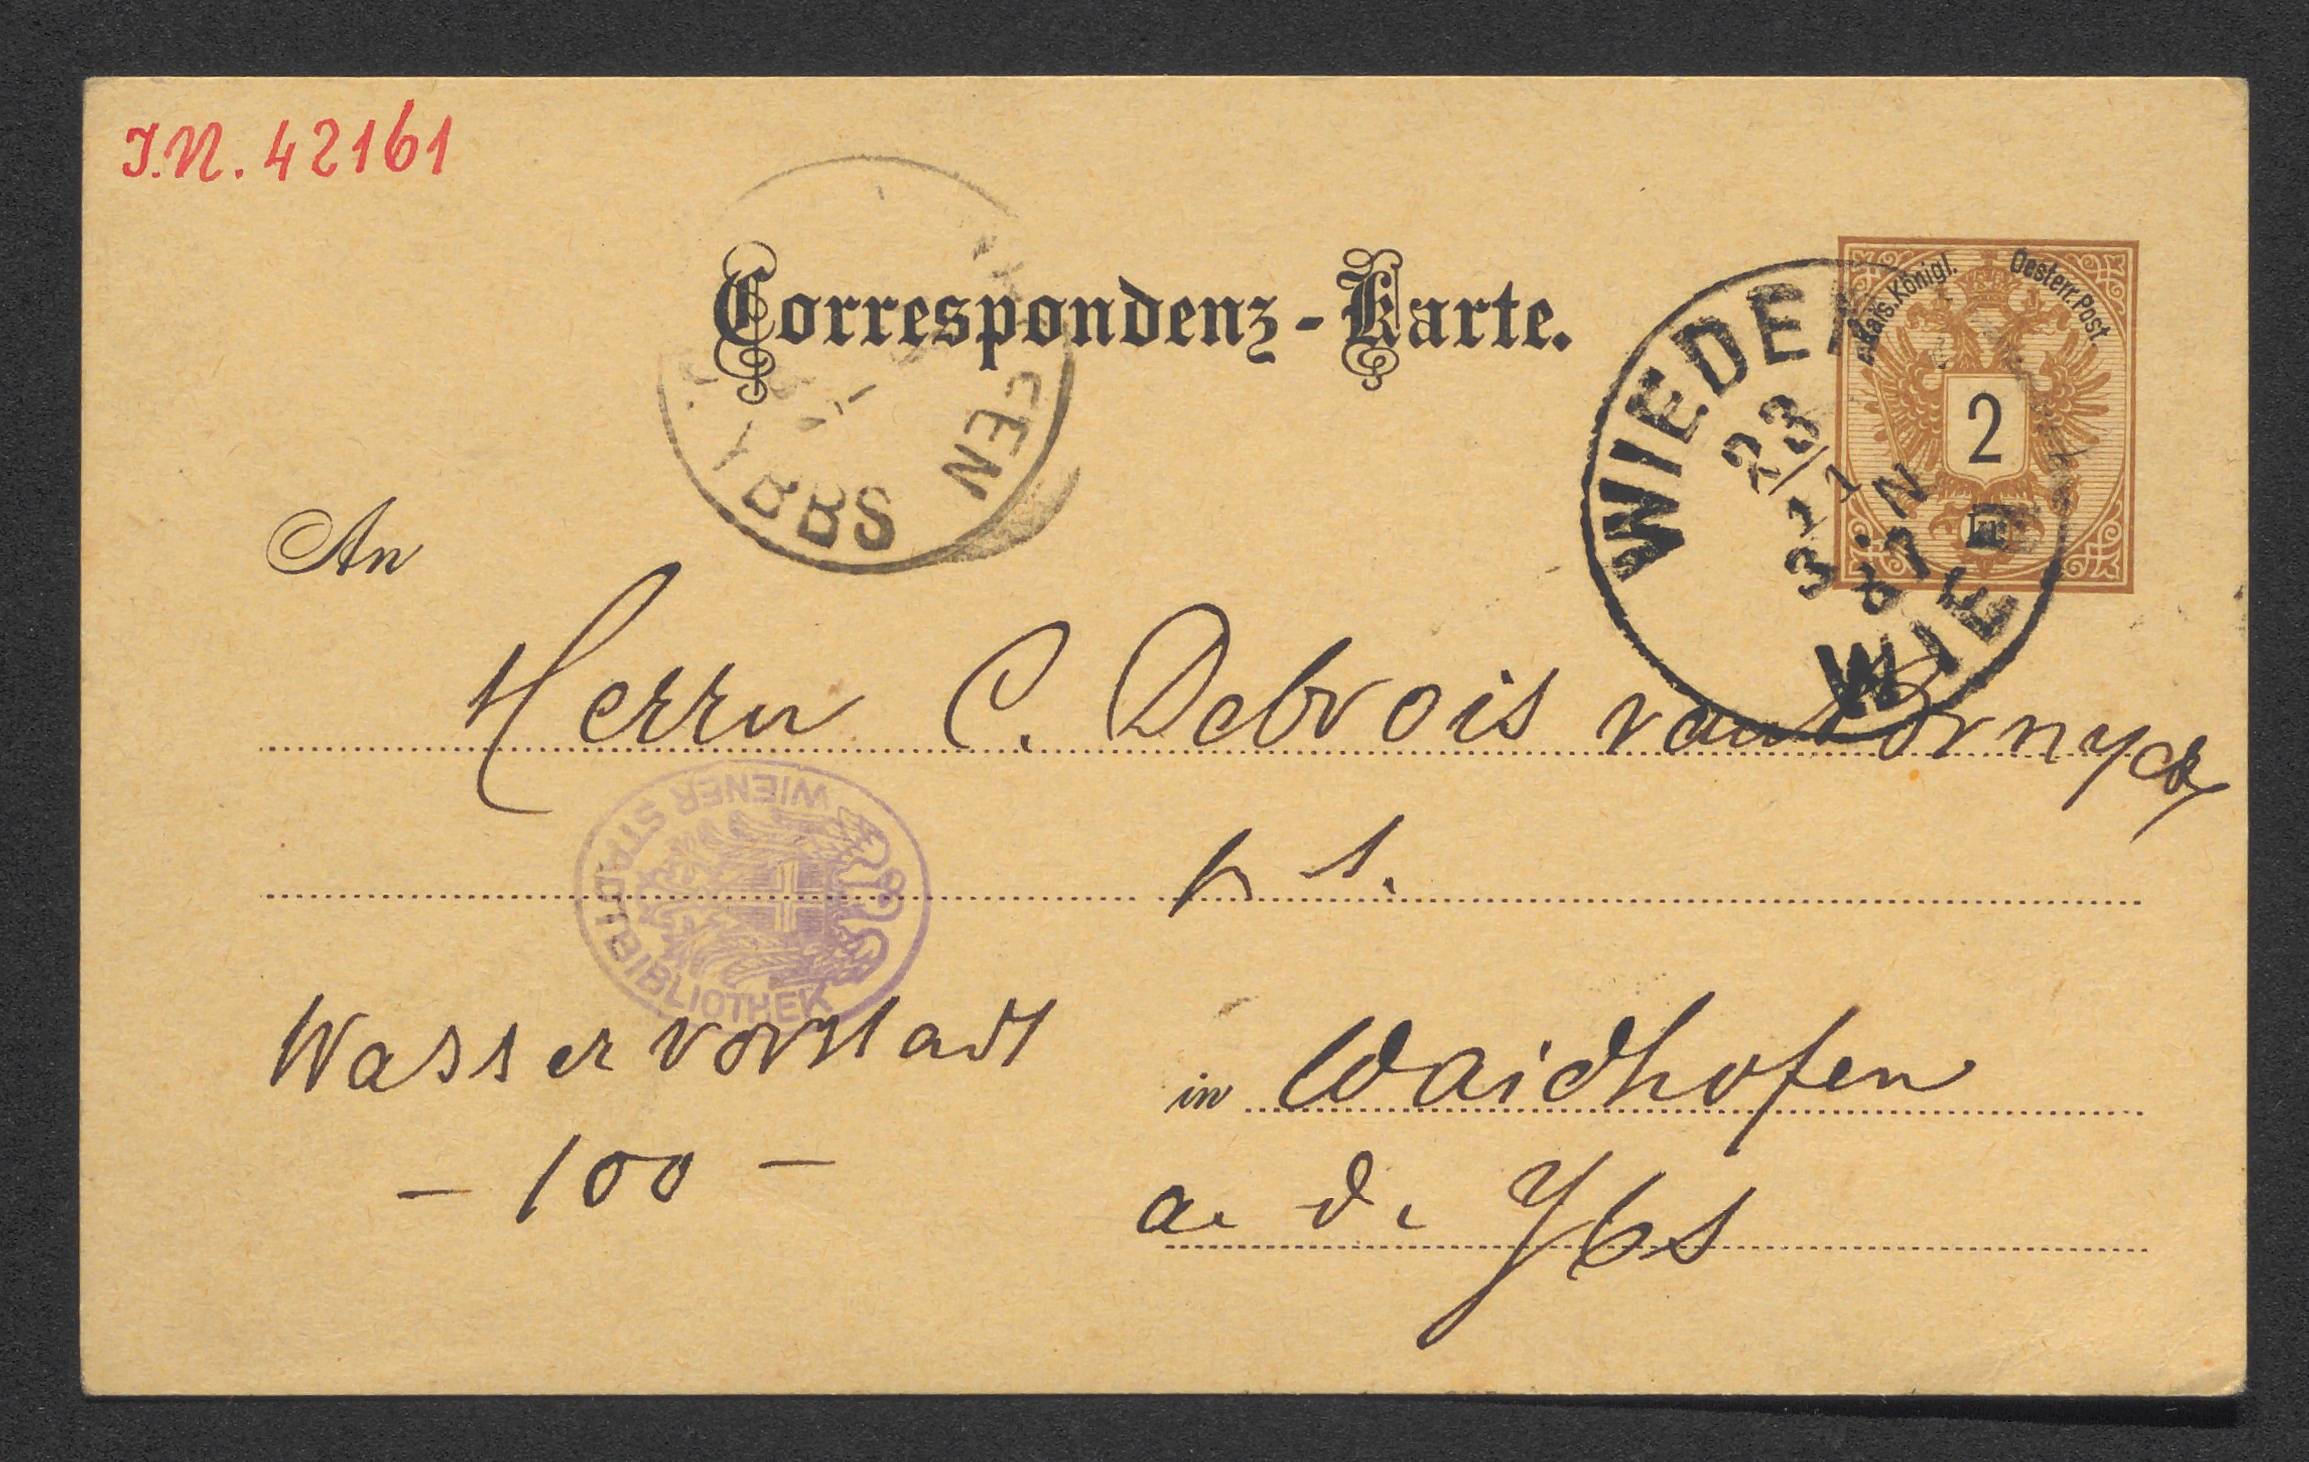 I.N. 42161
Correspondenz-Karte.
Kais. Königl. Oesterr. Post.
2
WIEDEN
23
1
87
WIEN
YBBS
An
Herrn C. Debrois van Brnyck
WIENER STADTBIBLIOTHEK
Wasservorstadt
in Waidhofen
- 100 -
a. d. Ybs